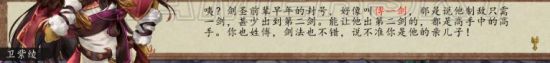 咦？剑圣前辈早年的封号，好像叫得一剑，都是说他制敌只需
一剑，甚少出到第二剑。能让他出第二剑的，都是高手中的高
手。你也姓傅，剑法也不错，说不准你是他的亲儿子！
卫紫绫